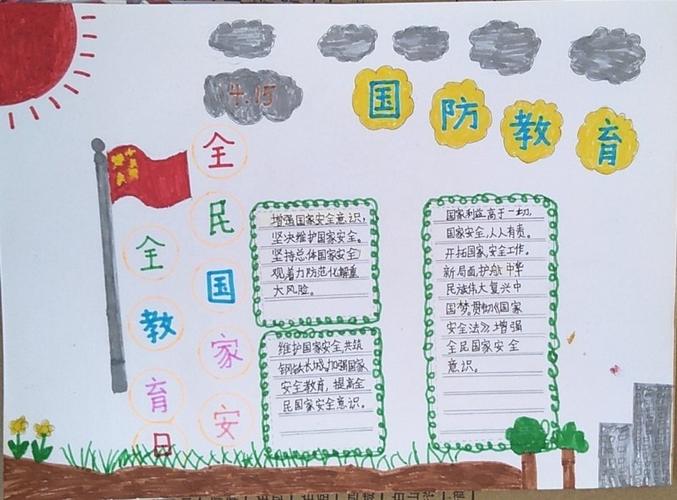 4.15
国防教育
全民国家安
全教育日
增强国家安全意识,
坚决维护国家安全。
坚持总体国家安全
观着力防范化解重
大风险。
维护国家安全,共筑
钢铁长城。加强国家
安全教育,提高全
民国家安全意识。
国家利益高于一切,
国家安全,人人有责。
开拓国家安全工作。
新局面,护航中华
民族伟大复兴中
国梦,贯彻《国家
安全法》增强
全民国家安全
意识。